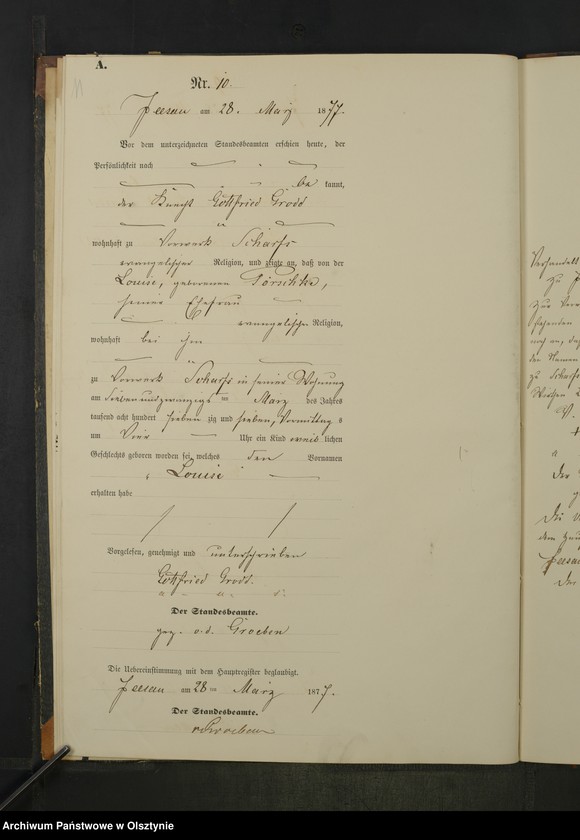 A.
Nr. 10.
am 28. März 1877.
Vor dem unterzeichneten Standesbeamten erschien heute, der
Persönlichkeit nach
be kannt,
der Knecht Gottfried Grodd
wohnhaft zu Vorwerk Scharfs
evangelischer Religion, und zeigte an, daß von der
Louise, geborenen
seiner Ehefrau
evangelischer Religion,
wohnhaft bei ihm
zu Vorwerk Scharfs in seiner Wohnung
am sieben und zwanzigsten März des Jahres
tausend acht hundert sieben zig und sieben, Vormittag s
um Vier Uhr ein Kind weib lichen
Geschlechts geboren worden sei, welches den Vornamen
Louise
erhalten habe
Vorgelesen, genehmigt und unterschrieben
Gottfried Grodd.
Der Standesbeamte.
gez. v. d. Groeben
Die Uebereinstimmung mit dem Hauptregister beglaubigt.
am 28 ten März 1877.
Der Standesbeamte.
vdGroeben
Archiwum Państwowe w Olsztynie